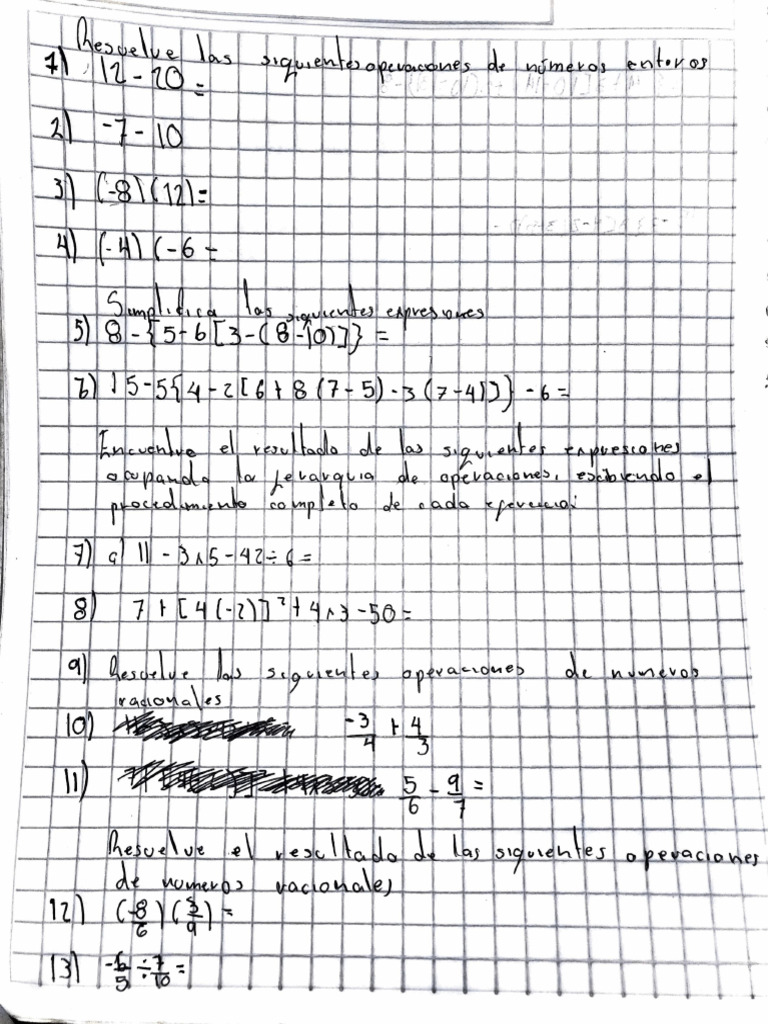 Resuelve las siguientes operaciones de números enteros
1) 12 - 20 =
2) -7 - 10
3) (-8)(12) =
4) (-4)(-6 =
Simplifica las siguientes expresiones
5) 8 - {5 - 6 [3 - (8 - 10)]} =
6) 15 - 5{4 - 2[6 + 8 (7 - 5) - 3 (7 - 4)]} - 6 =
Encuentre el resultado de las siguientes expresiones
ocupando la jerarquia de operaciones, escribiendo el
procedimiento completo de cada ejercicio:
7) a) 11 - 3 x 5 - 42 ÷ 6 =
8) 7 + [4(-2)]² + 4 x 3 - 50 =
9) Resuelve las siguientes operaciones de numeros
racionales
10) -3/4 + 4/3
11) 5/6 - 9/7 =
Resuelve el resultado de las siguientes operaciones
de numeros racionales
12) (-8/6)(3/9) =
13) ÷ 7/10 =